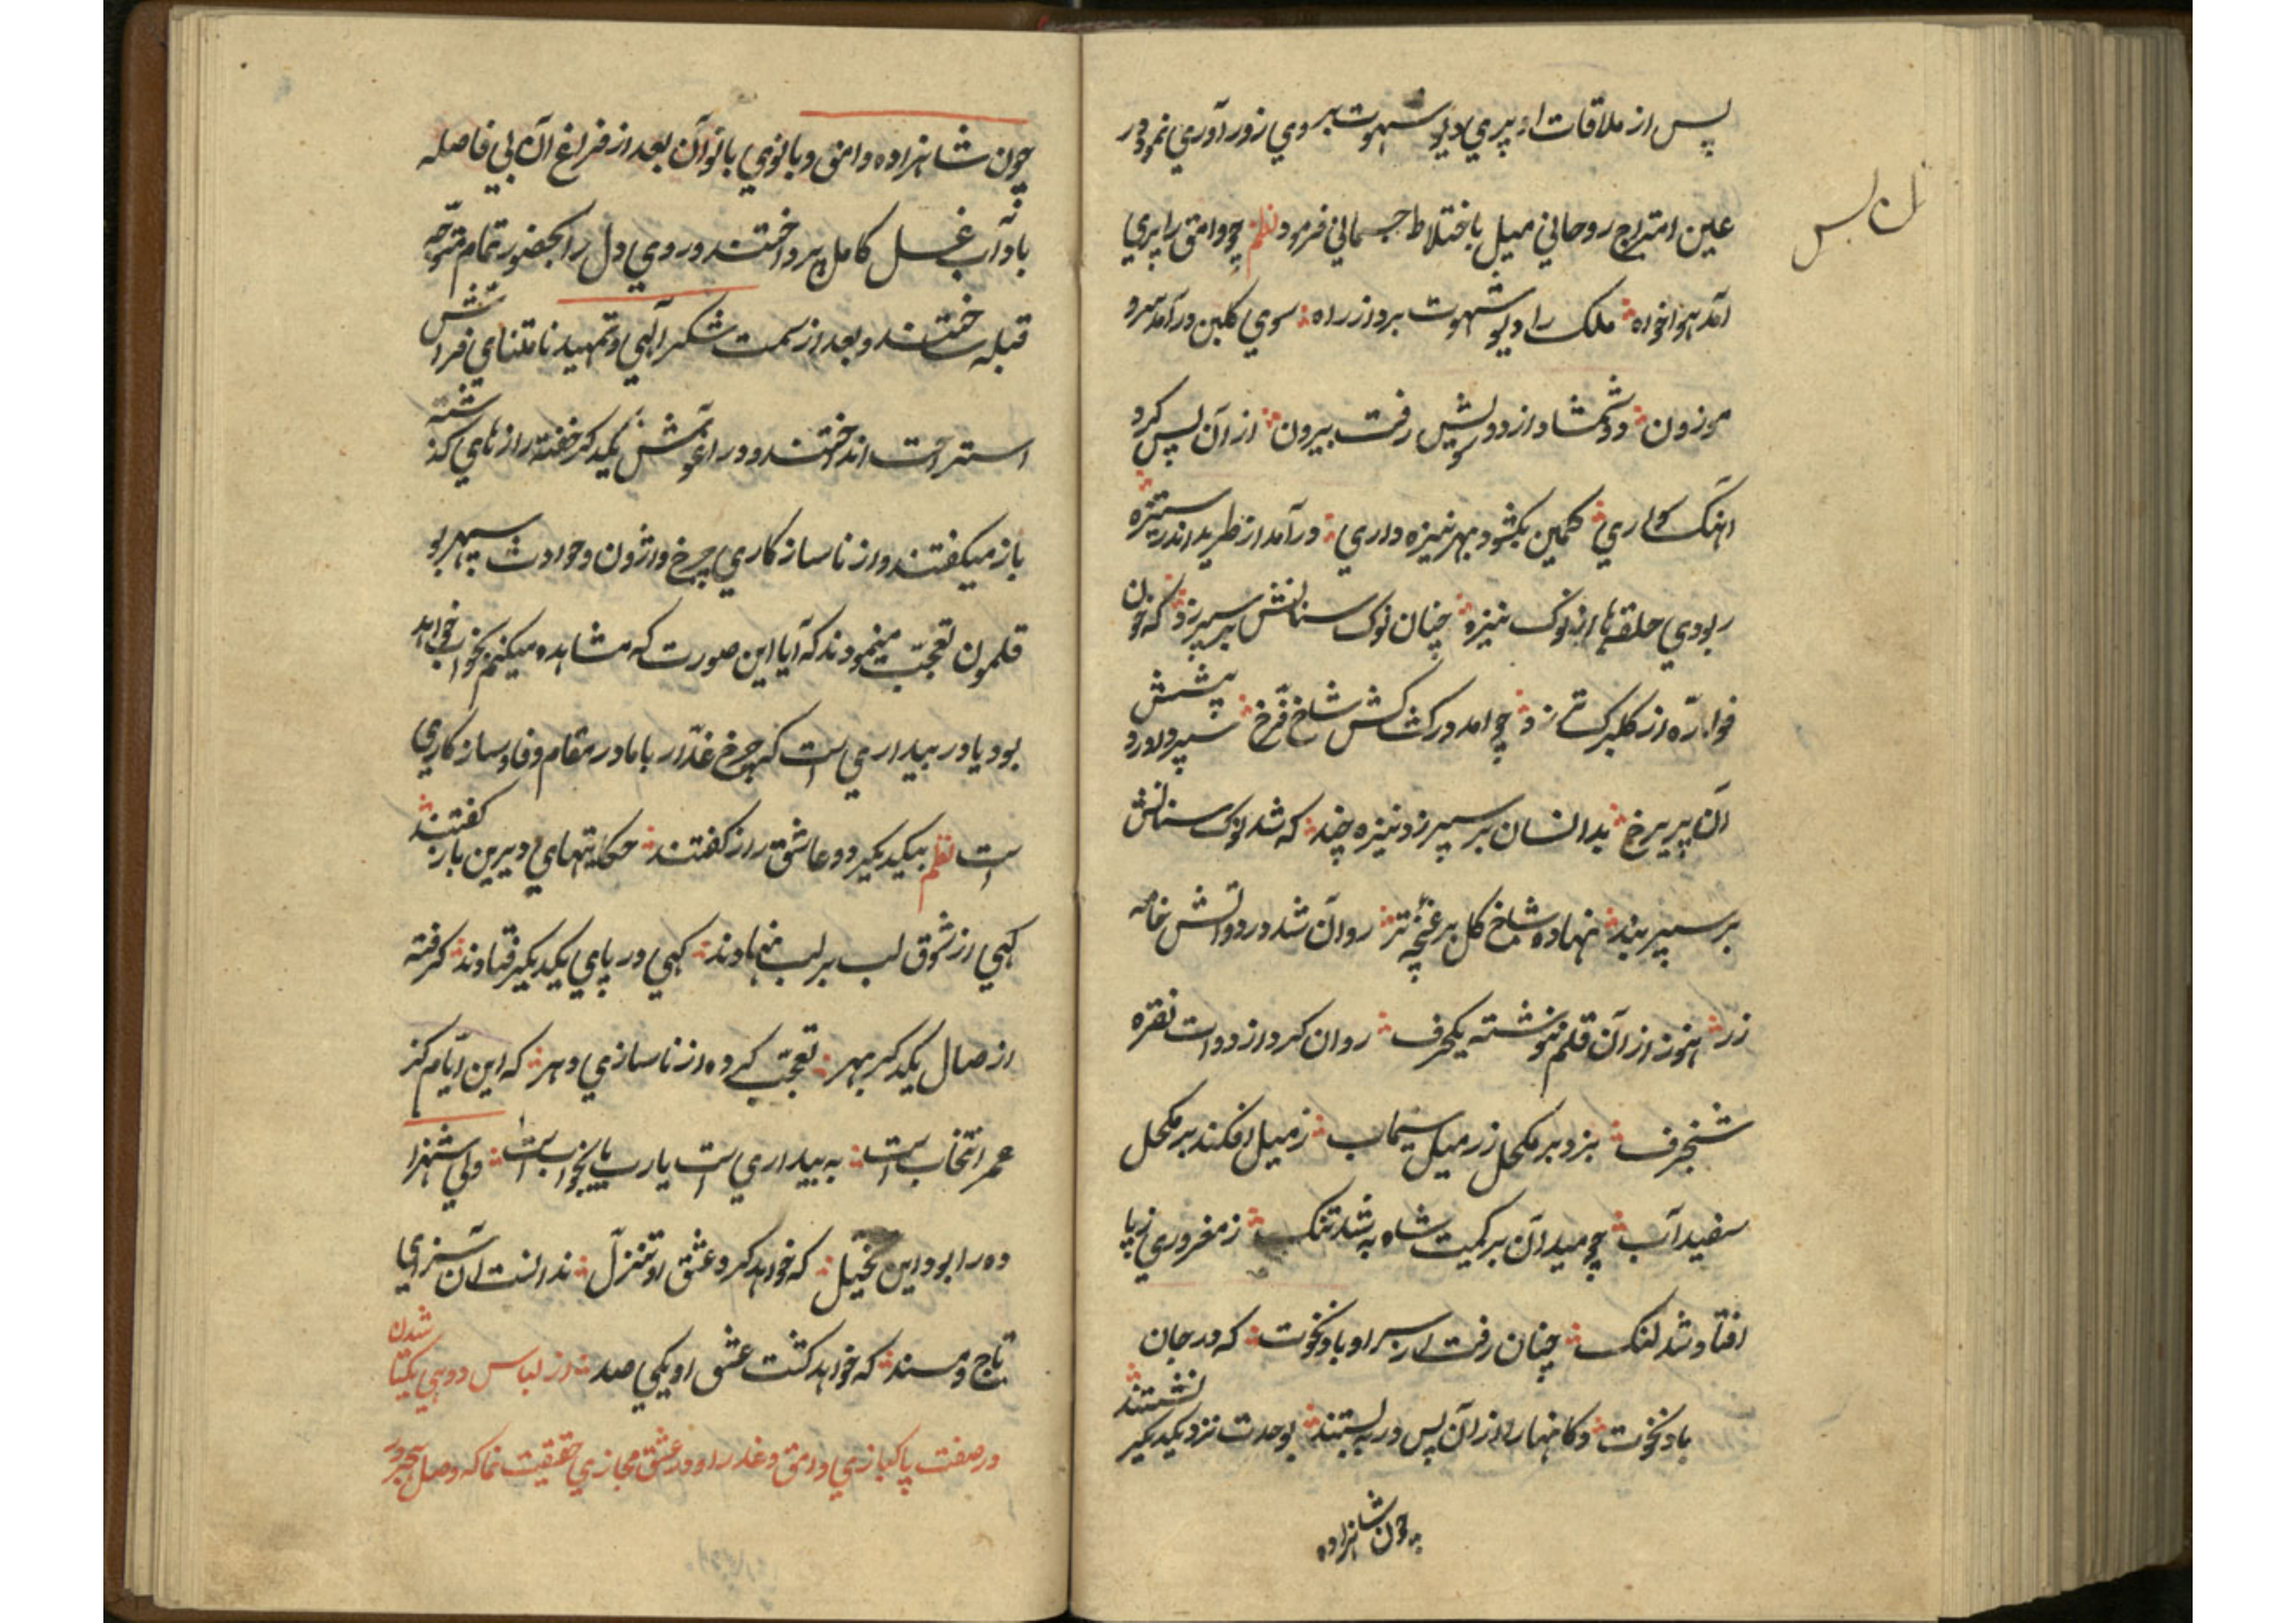 پس از ملاقات او پري ديو شهوت بر وي زور آوري نمود و در
عين امتزاج روحاني ميل باختلاط جسماني فرمود نظم چو وامق را پري
آمد هواخواه ملك را ديو شهوت برد از راه سوي گلبن درآمد سرو
موزون دو شمشاد از دو سويش رفت بيرون از آن پس كرد
آهنگ سواري كمين بگشود بهر نيزه داري درآمد از طريد اندر ستيزه
ربودي حلقها از نوك نيزه چنان نوك سنانش بر سپر زد كه خون
فواره از گلبرگ تر زد چو آمد در كشاكش شاخ فرخ سپر در رو
آن پريرخ بدانسان بر سپر زد نيزه چند كه شد نوك سنانش
بر سپر بند نهاده شاخ گل بر غنچه تر روان شد در دواتش خامه
زر هنوز از آن قلم ننوشته يكحرف روان كرد از دوات نقره
شنجرف بزد بر مكحل زر ميل سيماب ز ميل افكند بر مكحل
سفيدآب چو ميدان بر كميت شاه شد تنگ ز مغروري ز پا
افتاد و شد لنگ چنان رفت از سر او باد نخوت كه در جان
باد نخوت دكانها را از آن پس در ببستند بوحدت نزد يكديگر نشستند
چون شاهزاده
چون شاهزاده وامق و بانوي بانوان بعد از فراغ آن بي فاصله
باد آب غسل كامل پرداختند و روي دل را بحضور تمام متوجه
قبله ساختند و بعد از سمت شكر آلهي و تمهيد نامتناي فراش
استراحت انداختند و در آغوش يكديگر خفته رازهاي گذشته
باز ميگفتند و از ناسازكاري چرخ واژون و حوادث سپهر بو
قلمون تعجب مينمودند كه آيا اين صورت كه مشاهده ميكنيم بخواب خواهد
بود يا در بيداري است كه چرخ غدار با ما در مقام وفا و سازكاري
است نظم بيكديگر دو عاشق راز گفتند حكايتهاي ديرين باز گفتند
گهي از شوق لب بر لب نهادند گهي در پاي يكديگر فتادند گرفته
از وصال يكديگر بهر تعجب كرده از ناسازي دهر كه اين ايام كز
عمر انتخاب است به بيداري است يارب يا بخواب است ولي شهزا
ده را بود اين تخيل كه خواهد كرد عشق او تنزل ندانست آن سزاي
تاج و مسند كه خواهد گشت عشق او يكي صد در لباس دوهي يكتا شدن
در صفت پاكبازي وامق و عذرا و در عشق مجازي حقيقت نما كه وصل